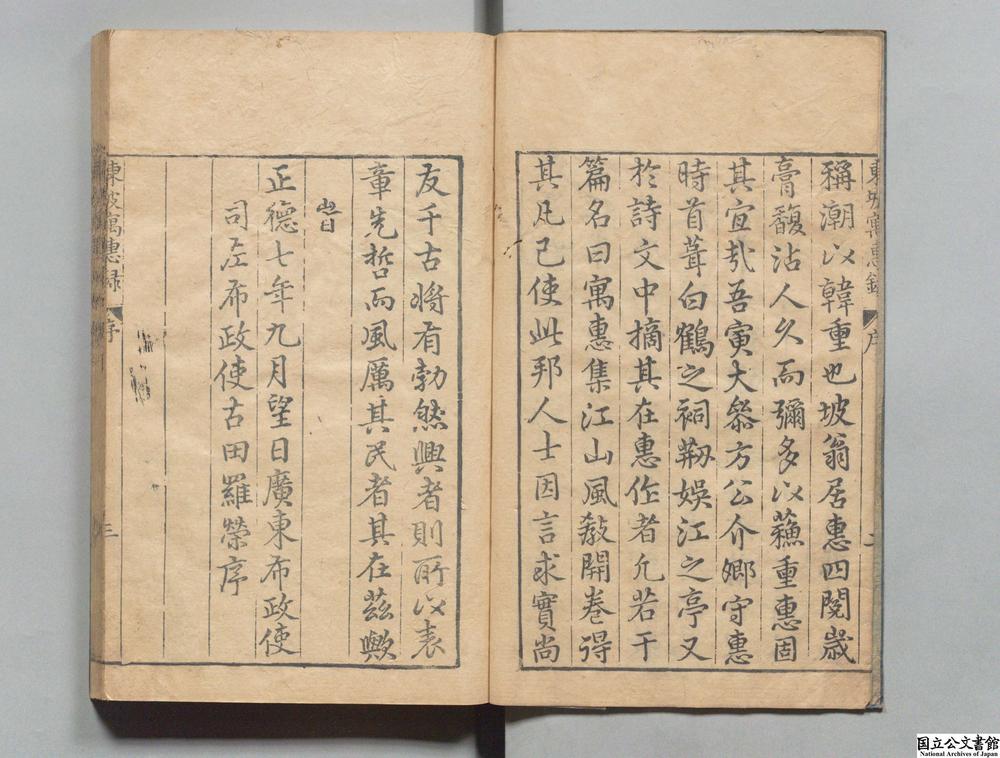 東坡寓惠錄 序 二
稱潮以韓重也坡翁居惠四閱歲
膏馥沾人久而彌多以蘓重惠固
其宜㢤吾寅大叅方公介卿守惠
時首葺白鶴之祠剏娛江之亭又
於詩文中摘其在惠作者凢若干
篇名曰寓惠集江山風教開巻得
其凡已使此邦人士因言求實尚
友千古将有勃然興者則所以表
章先哲而風厲其民者其在茲歟
正德七年九月望日廣東布政使
司左布政使古田羅榮序
東坡寓惠録 序 三
国立公文書館
National Archives of Japan